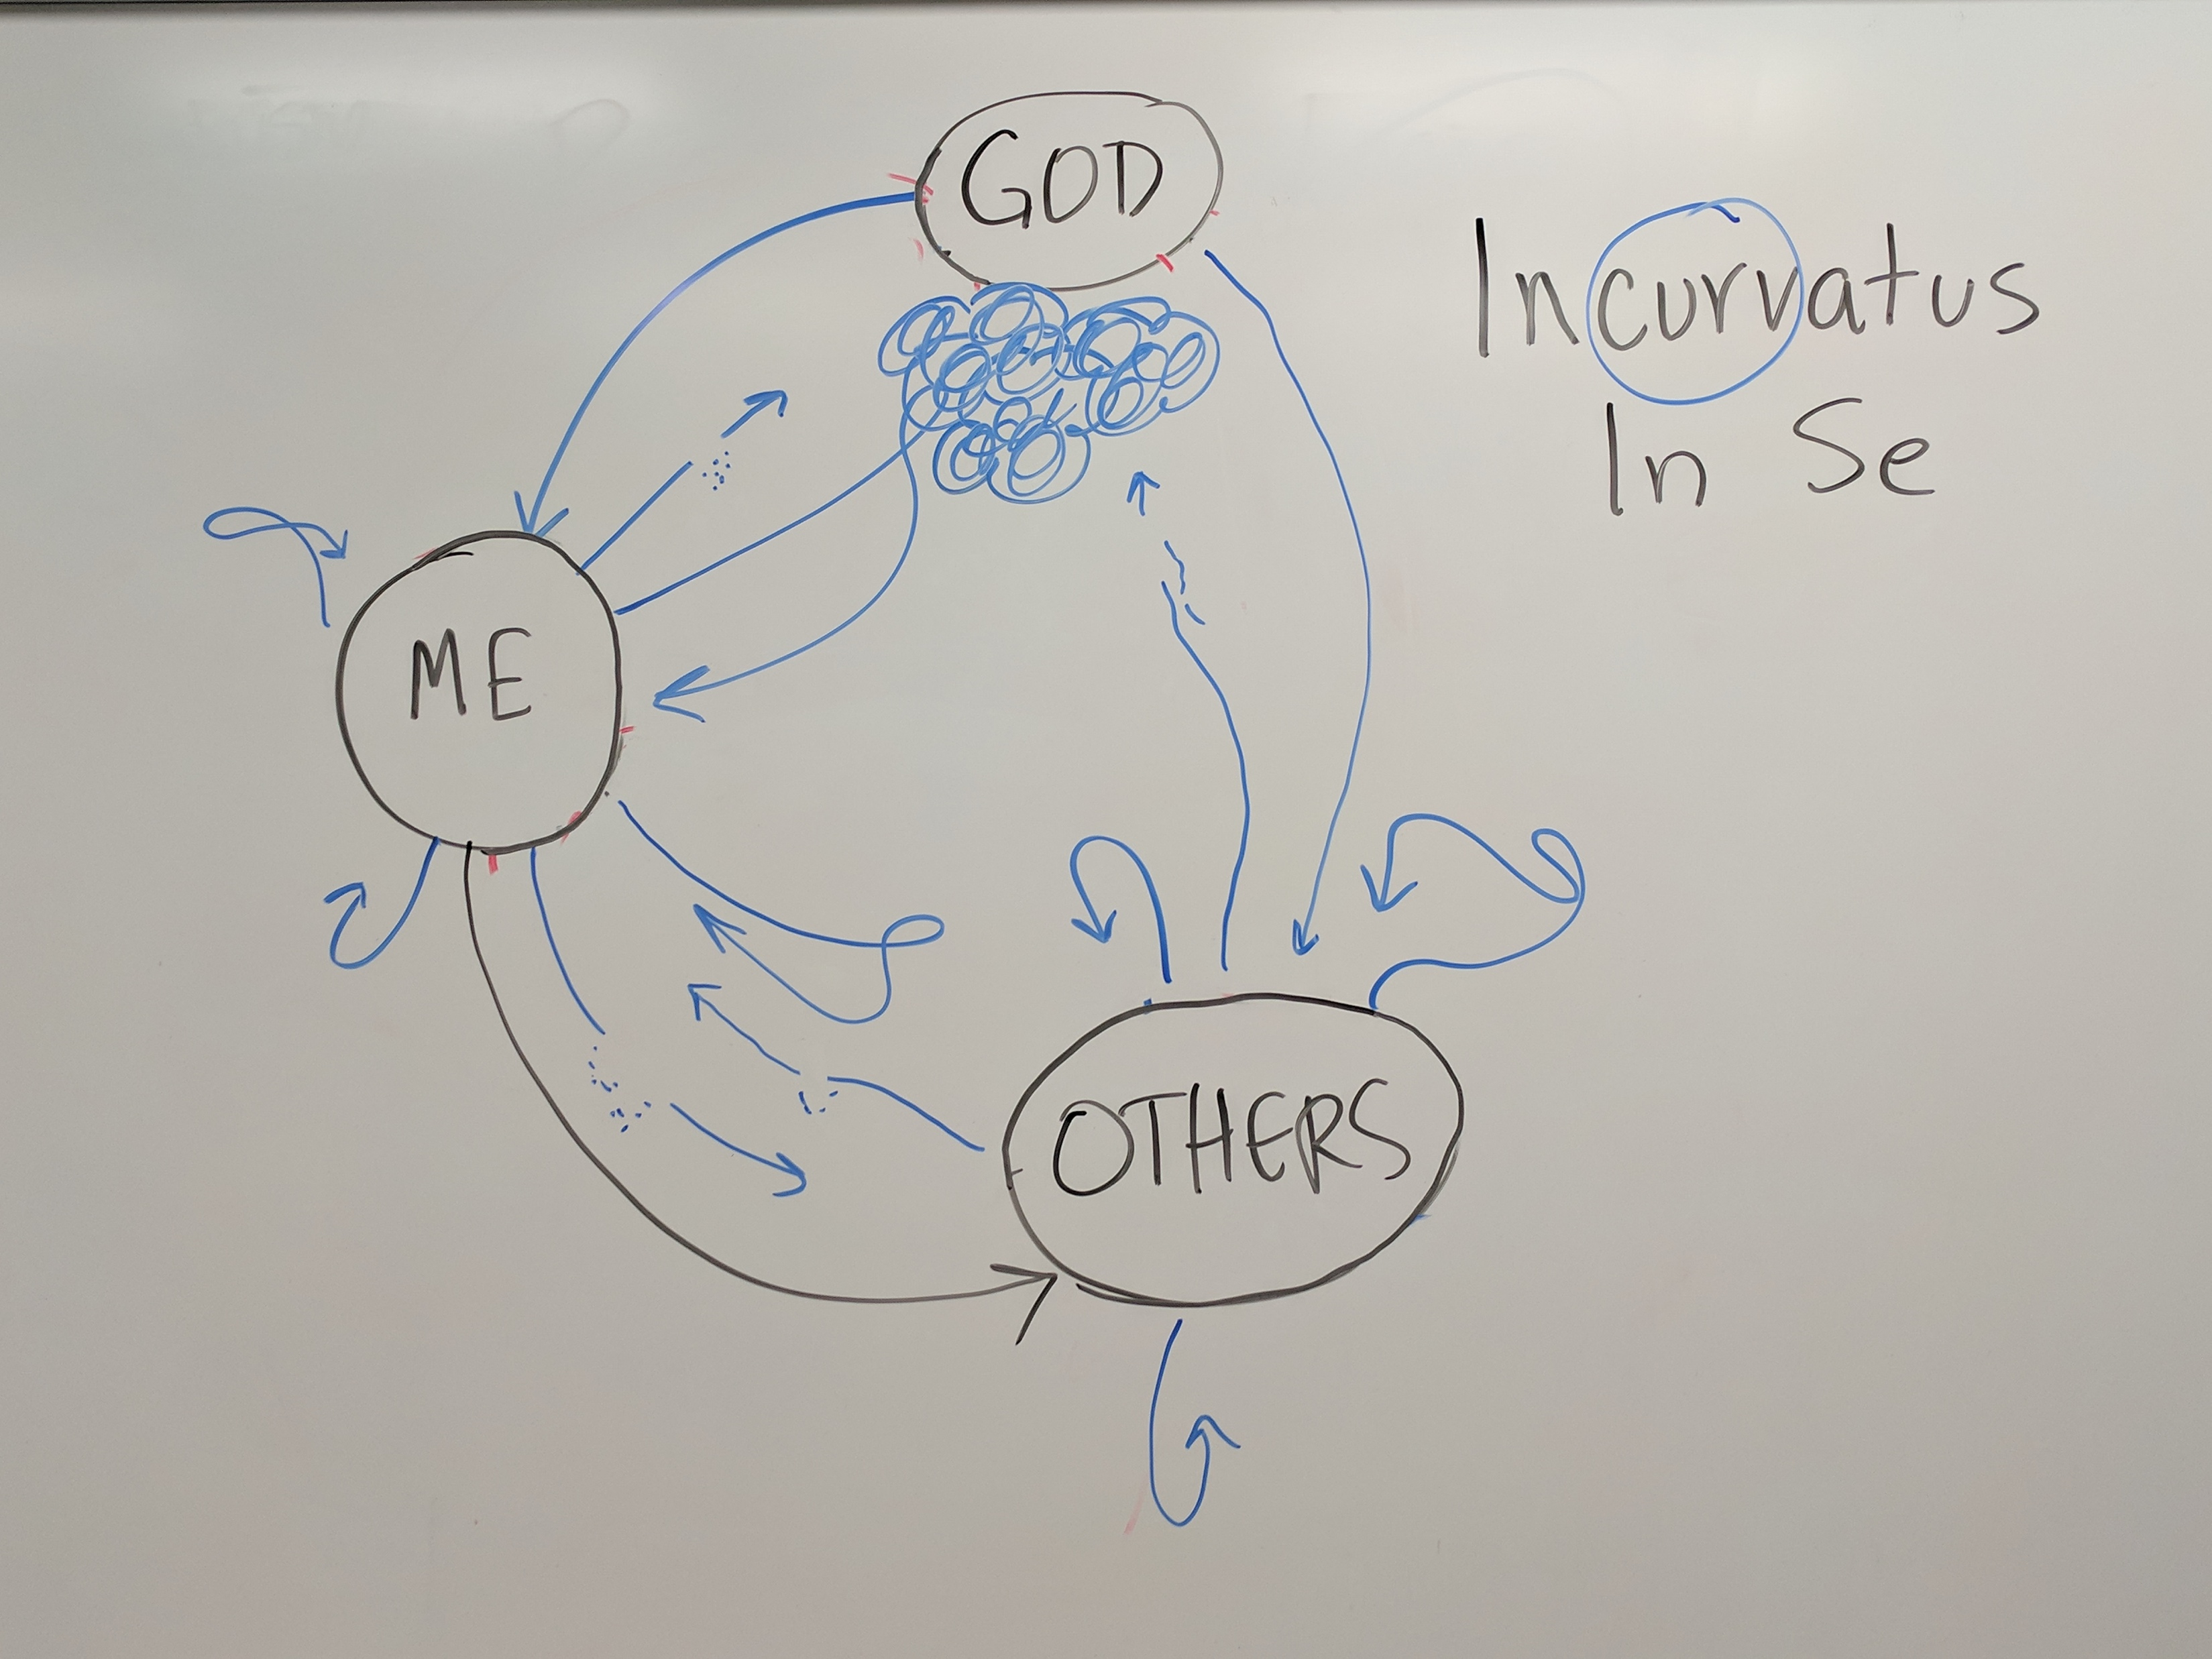 GOD
Incurvatus
In Se
ME
OTHERS